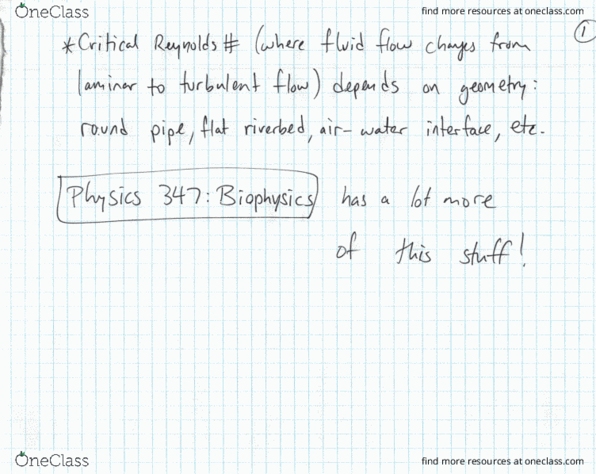 OneClass
find more resources at oneclass.com
1
*Critical Reynolds # (where fluid flow changes from
laminar to turbulent flow) depends on geometry:
round pipe, flat riverbed, air-water interface, etc.
Physics 347: Biophysics has a lot more
of this stuff!
OneClass
find more resources at oneclass.com